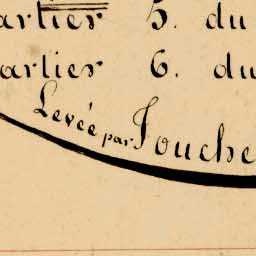 artier 5. du
artier 6. du
Levée par Fouche